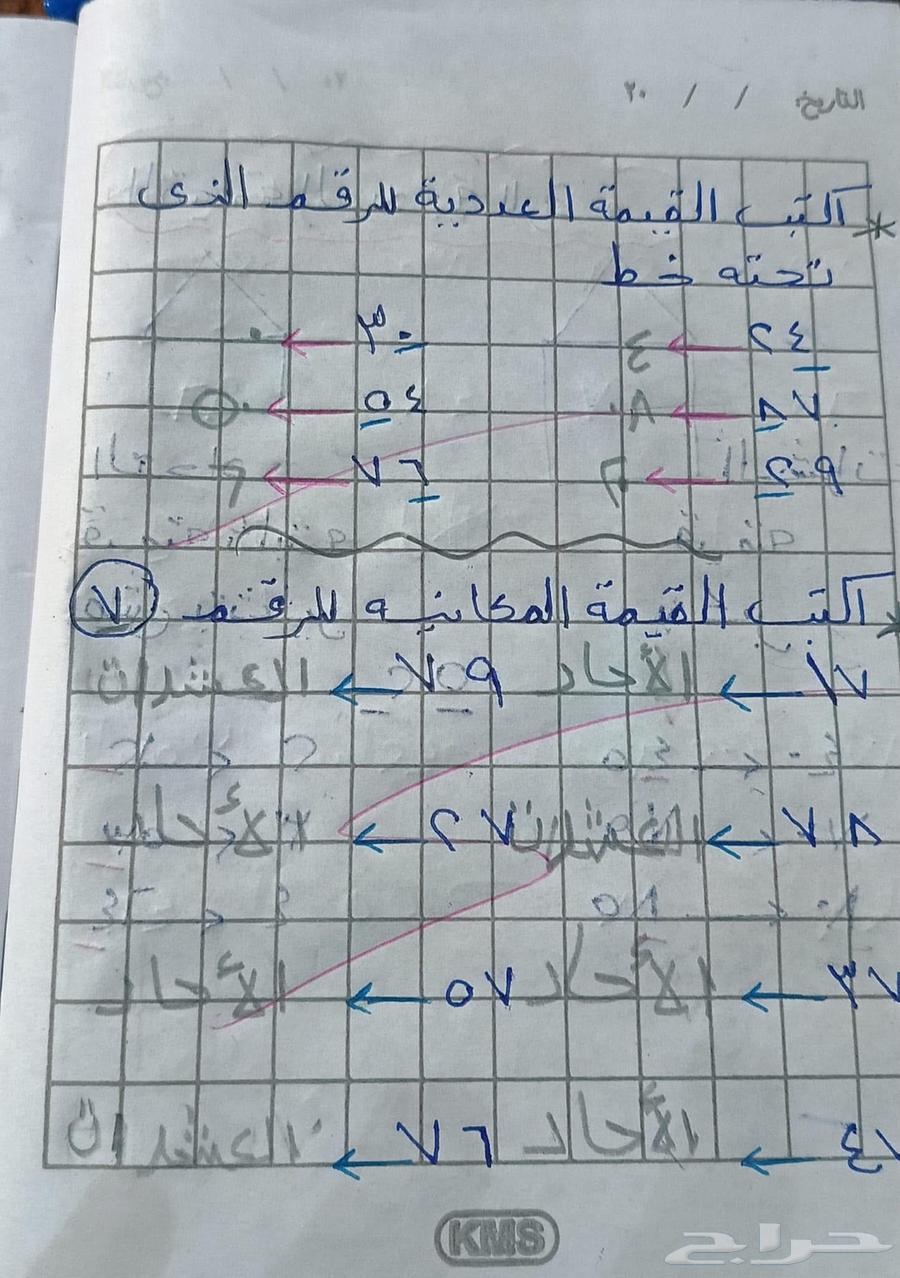 التاريخ / / ٢٠
* اكتب القيمة العددية للرقم الذي
تحته خط
٤٢ ← ٤ ٣٠ ← ٠
٧٨ ← ٨ ٥٤ ← ٥
٩٢ ← ٢ ٧٦ ← ٦
* اكتب القيمة المكانية للرقم ٧
١٧ ← الأحاد ٧٩ ← العشرات
٧٨ ← العشرات ٢٧ ← الأحاد
← الأحاد ٥٧ ← الأحاد
← الأحاد ٧٦ ← العشرات
KMS
حراج